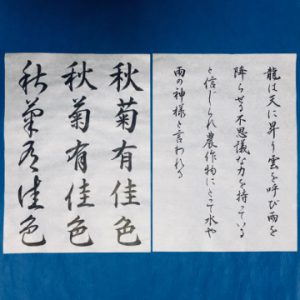 龍は天に昇り雲を呼び雨を
降らせる不思議な力を持っている
と信じられ農作物にとって水や
雨の神様と言われる
秋菊有佳色
秋菊有佳色
秋菊有佳色